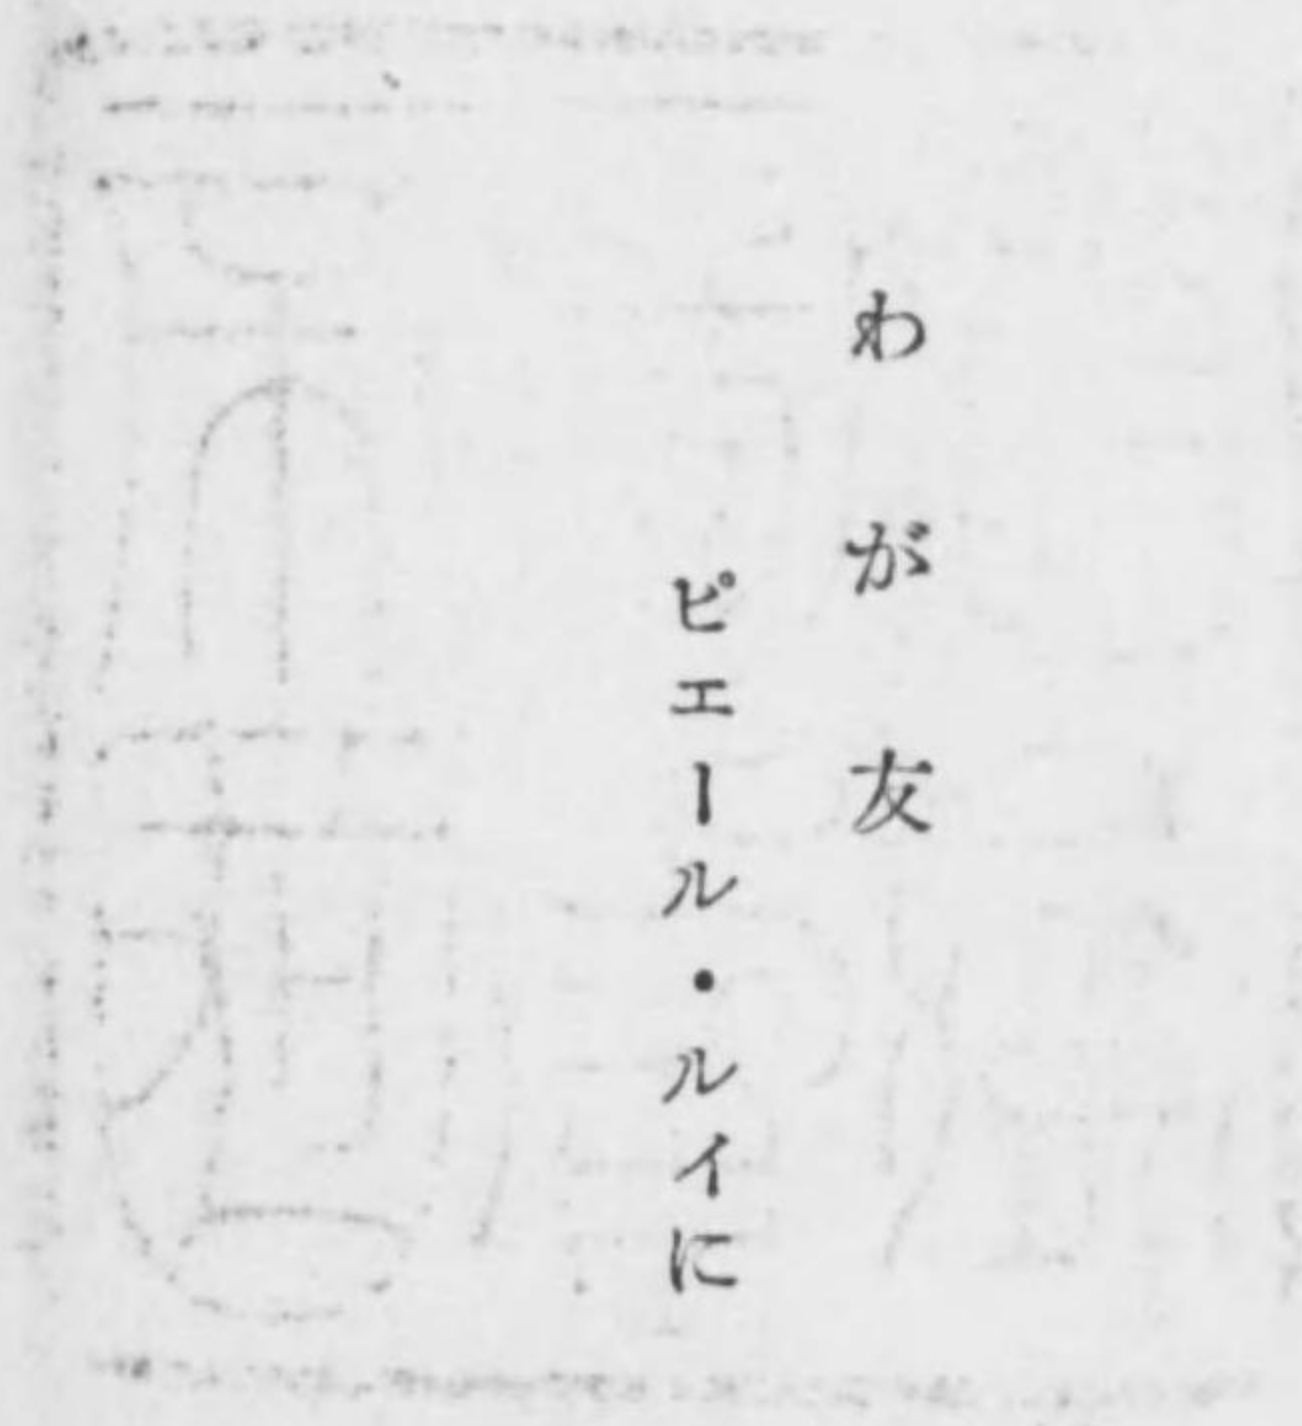 わが友
ピエール・ルイに